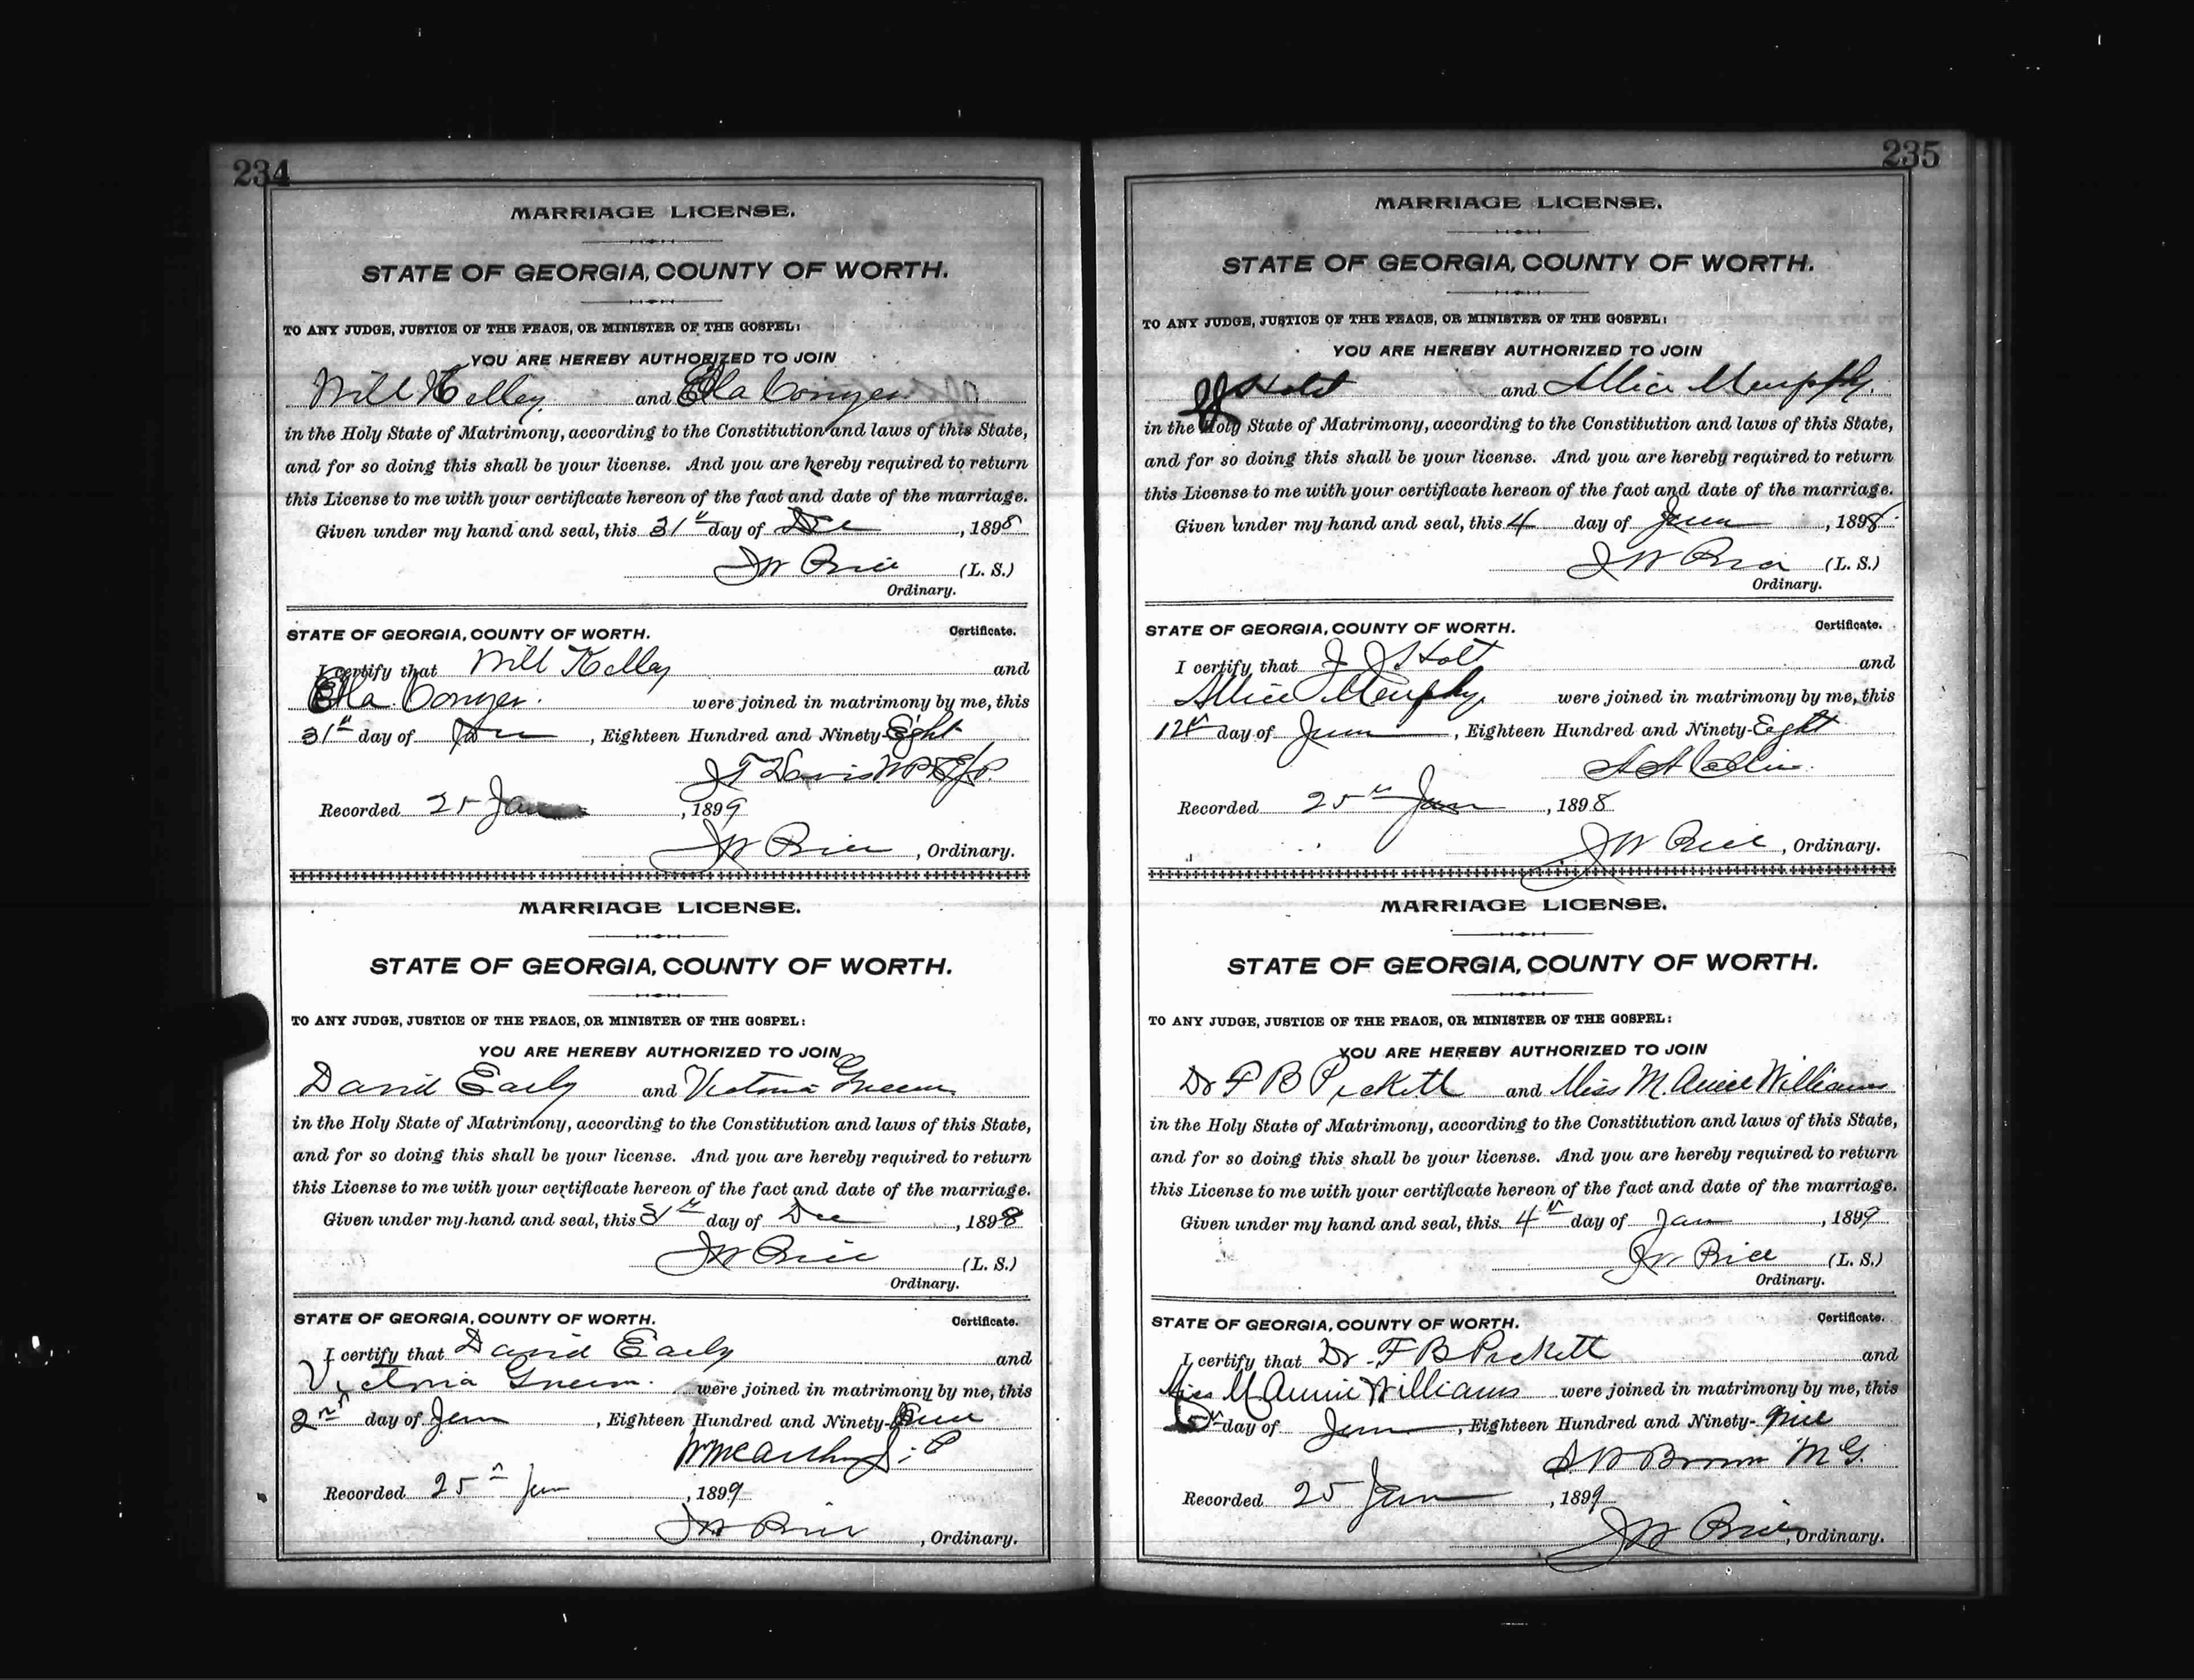 234
MARRIAGE LICENSE.
STATE OF GEORGIA, COUNTY OF WORTH.
TO ANY JUDGE, JUSTICE OF THE PEACE, OR MINISTER OF THE GOSPEL:
YOU ARE HEREBY AUTHORIZED TO JOIN
Will Kelley and Ella Conyer
in the Holy State of Matrimony, according to the Constitution and laws of this State,
and for so doing this shall be your license. And you are hereby required to return
this License to me with your certificate hereon of the fact and date of the marriage.
Given under my hand and seal, this 31st day of Dec, 1898
JW Price (L. S.)
Ordinary.
STATE OF GEORGIA, COUNTY OF WORTH. Certificate.
I certify that Will Kelley and
Ella Conyer. were joined in matrimony by me, this
31st day of, Eighteen Hundred and Ninety-Eight
J T Davis
Recorded 25 Jan, 1899
JW Price, Ordinary.
MARRIAGE LICENSE.
STATE OF GEORGIA, COUNTY OF WORTH.
TO ANY JUDGE, JUSTICE OF THE PEACE, OR MINISTER OF THE GOSPEL:
YOU ARE HEREBY AUTHORIZED TO JOIN
David Early and Victoria Green
in the Holy State of Matrimony, according to the Constitution and laws of this State,
and for so doing this shall be your license. And you are hereby required to return
this License to me with your certificate hereon of the fact and date of the marriage.
Given under my hand and seal, this 31st day of Dec, 1898
JW Price (L. S.)
Ordinary.
STATE OF GEORGIA, COUNTY OF WORTH. Certificate.
I certify that David Early and
Victoria Green. were joined in matrimony by me, this
2nd day of Jan, Eighteen Hundred and Ninety-
J.P
Recorded 25th Jan, 1899
JW Price, Ordinary.
235
MARRIAGE LICENSE.
STATE OF GEORGIA, COUNTY OF WORTH.
TO ANY JUDGE, JUSTICE OF THE PEACE, OR MINISTER OF THE GOSPEL:
YOU ARE HEREBY AUTHORIZED TO JOIN
JJ Holt and Allice Murphy
in the Holy State of Matrimony, according to the Constitution and laws of this State,
and for so doing this shall be your license. And you are hereby required to return
this License to me with your certificate hereon of the fact and date of the marriage.
Given under my hand and seal, this 4 day of, 1898
JW Price (L. S.)
Ordinary.
STATE OF GEORGIA, COUNTY OF WORTH. Certificate.
I certify that J J Holt and
Allice Murphy were joined in matrimony by me, this
12th day of, Eighteen Hundred and Ninety-Eight
Recorded 25th, 1898
JW Price, Ordinary.
MARRIAGE LICENSE.
STATE OF GEORGIA, COUNTY OF WORTH.
TO ANY JUDGE, JUSTICE OF THE PEACE, OR MINISTER OF THE GOSPEL:
YOU ARE HEREBY AUTHORIZED TO JOIN
Dr F B Pickett and Miss M. Annie Williams
in the Holy State of Matrimony, according to the Constitution and laws of this State,
and for so doing this shall be your license. And you are hereby required to return
this License to me with your certificate hereon of the fact and date of the marriage.
Given under my hand and seal, this 4th day of Jan, 1899
JW Price (L. S.)
Ordinary.
STATE OF GEORGIA, COUNTY OF WORTH. Certificate.
I certify that Dr. F B Pickett and
Miss M Annie Williams were joined in matrimony by me, this
5th day of Jan, Eighteen Hundred and Ninety-Nine
Brown M G.
Recorded 25 Jan, 1899
JW Price, Ordinary.